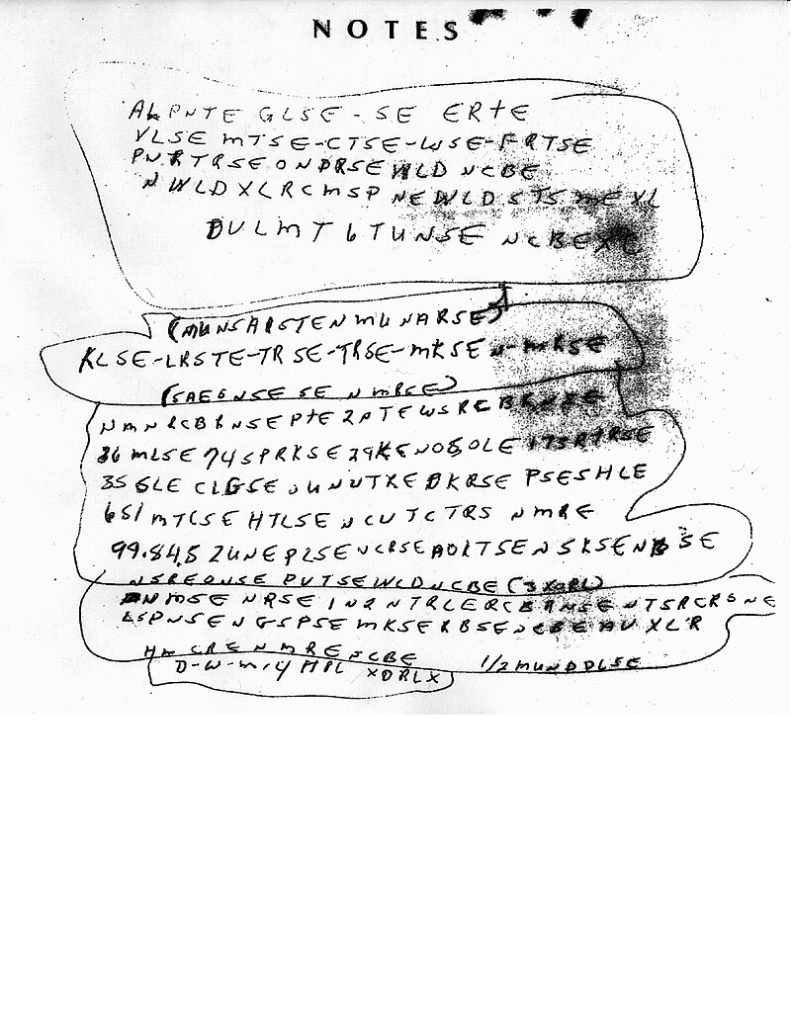 NOTES
ALPNTE GLSE-SE ERTE
VLSE MTSE-CTSE-WSE-FRTSE
PNRTRSEONDRSEWLD NCBE
NWLDXLRCMSP NEWLDSTSMEXL
DULMT6TUNSE NCBEXC
(MUNSAISTENMUNARSE)
KLSE-LRSTE-TRSE-TRSE-MKSEN-MRSE
(SAEGNSESE NMBSE)
NMNRCBRNSEPTE2PTEWSRCBRNSE
36MLSE74SPRKSE29KENOSOLE173RTRSE
35GLE CLGSE UUNUTXEDKRSE PSESHLE
651MTCSE HTLSE NCUTCTRS NMRE
99.84.52UNEPLSENCRSEAOLTSENSKSENBSE
NSREONSE PUTSEWLDNCBE(3XORL)
NMSE NRSE IN2NTRLERCBRNSE NTSRCRSNE
LSPNSENGSPSE MKSERBSENCBEAUXLR
HM CRENMRENCBE 1/2MUNDDLSE
D-W-M-4HPL XDRLX